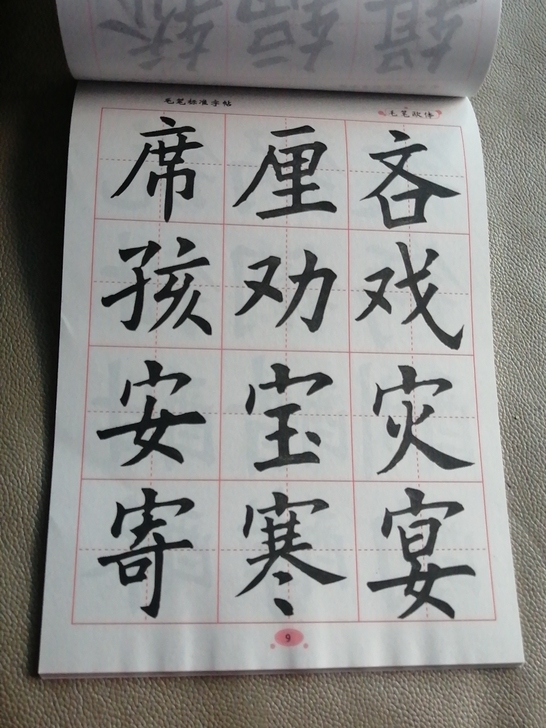 毛笔标准字帖
毛笔欧体
席厘吝
孩劝戏
安宝灾
寄寒宴
9